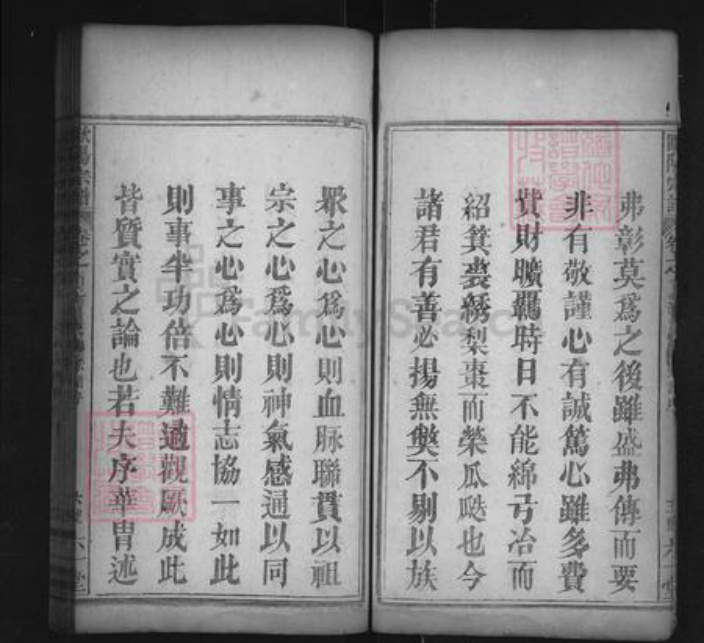 弗彰莫爲之後雖盛弗傳而要
非有敬謹心有誠篤心雖多費
貲財曠羈時日不能綿弓冶而
紹箕裘綉梨棗而榮瓜瓞也今
諸君有善必揚無獘不剔以族
眾之心爲心則血脉聯貫以祖
宗之心爲心則神氣感通以同
事之心爲心則情志協一如此
則事半功倍不難遹觀厥成此
皆質實之論也若夫序華胄述
FamilySearch